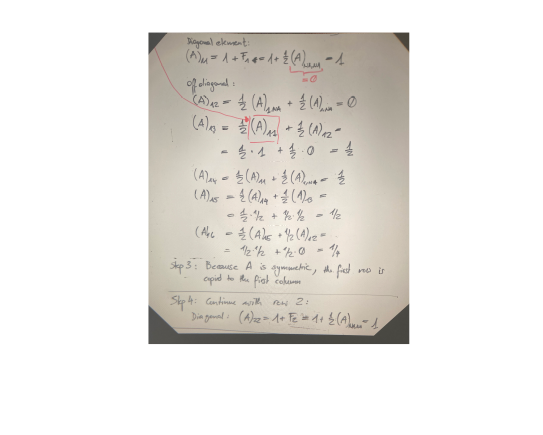 Diagonal element:
(A)₁₁ = 1 + F₁ = 1 + ½ (A)NA,NA = 1
= 0
Off diagonal:
(A)₁₂ = ½ (A)1,NA + ½ (A)1,NA = 0
(A)₁₃ = ½ (A)₁₁ + ½ (A)₁₂ =
= ½ · 1 + ½ · 0 = ½
(A)₁₄ = ½ (A)₁₁ + ½ (A)1,NA = ½
(A)₁₅ = ½ (A)₁₄ + ½ (A)₁₃ =
= ½ · 1/2 + ½ · ½ = 1/2
(A)₁₆ = ½ (A)₁₅ + 1/2 (A)₁₂ =
= 1/2 · 1/2 + 1/2 · 0 = 1/4
Step 3: Because A is symmetric, the first row is
equal to the first column
Step 4: Continue with row 2:
Diagonal: (A)₂₂ = 1 + F₂ = 1 + ½ (A)NA,NA = 1